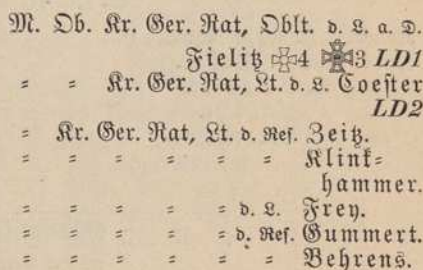 M. Ob. Kr. Ger. Rat, Oblt. d. L. a. D.
Fielitz 4 3 LD1
= = Kr. Ger. Rat, Lt. d. L. Coester
LD2
= Kr. Ger. Rat, Lt. d. Res. Zeitz.
= = = = = = Klink=
hammer.
= = = = = d. L. Frey.
= = = = = d. Res. Gummert.
= = = = = = Behrens.